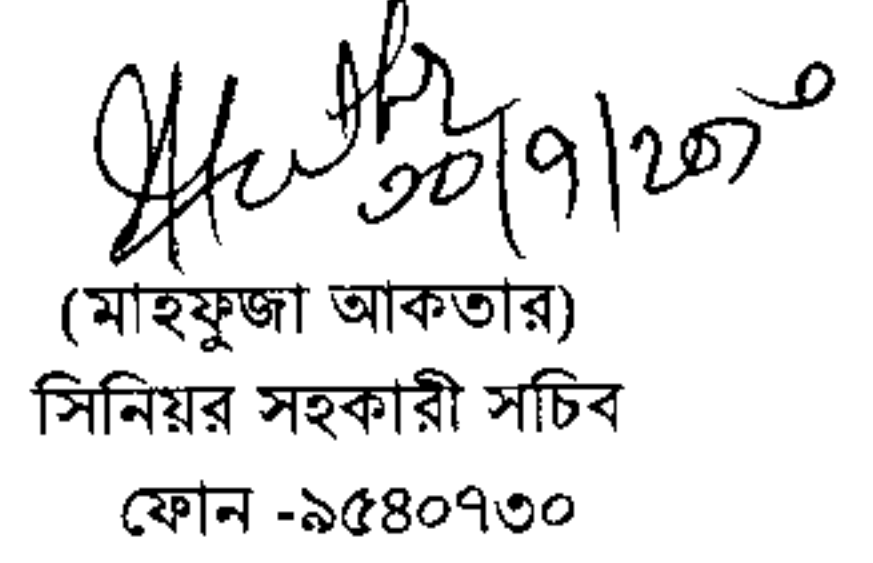 ৩০/৭/২০১৩
(মাহফুজা আকতার)
সিনিয়র সহকারী সচিব
ফোন -৯৫৪০৭৩০